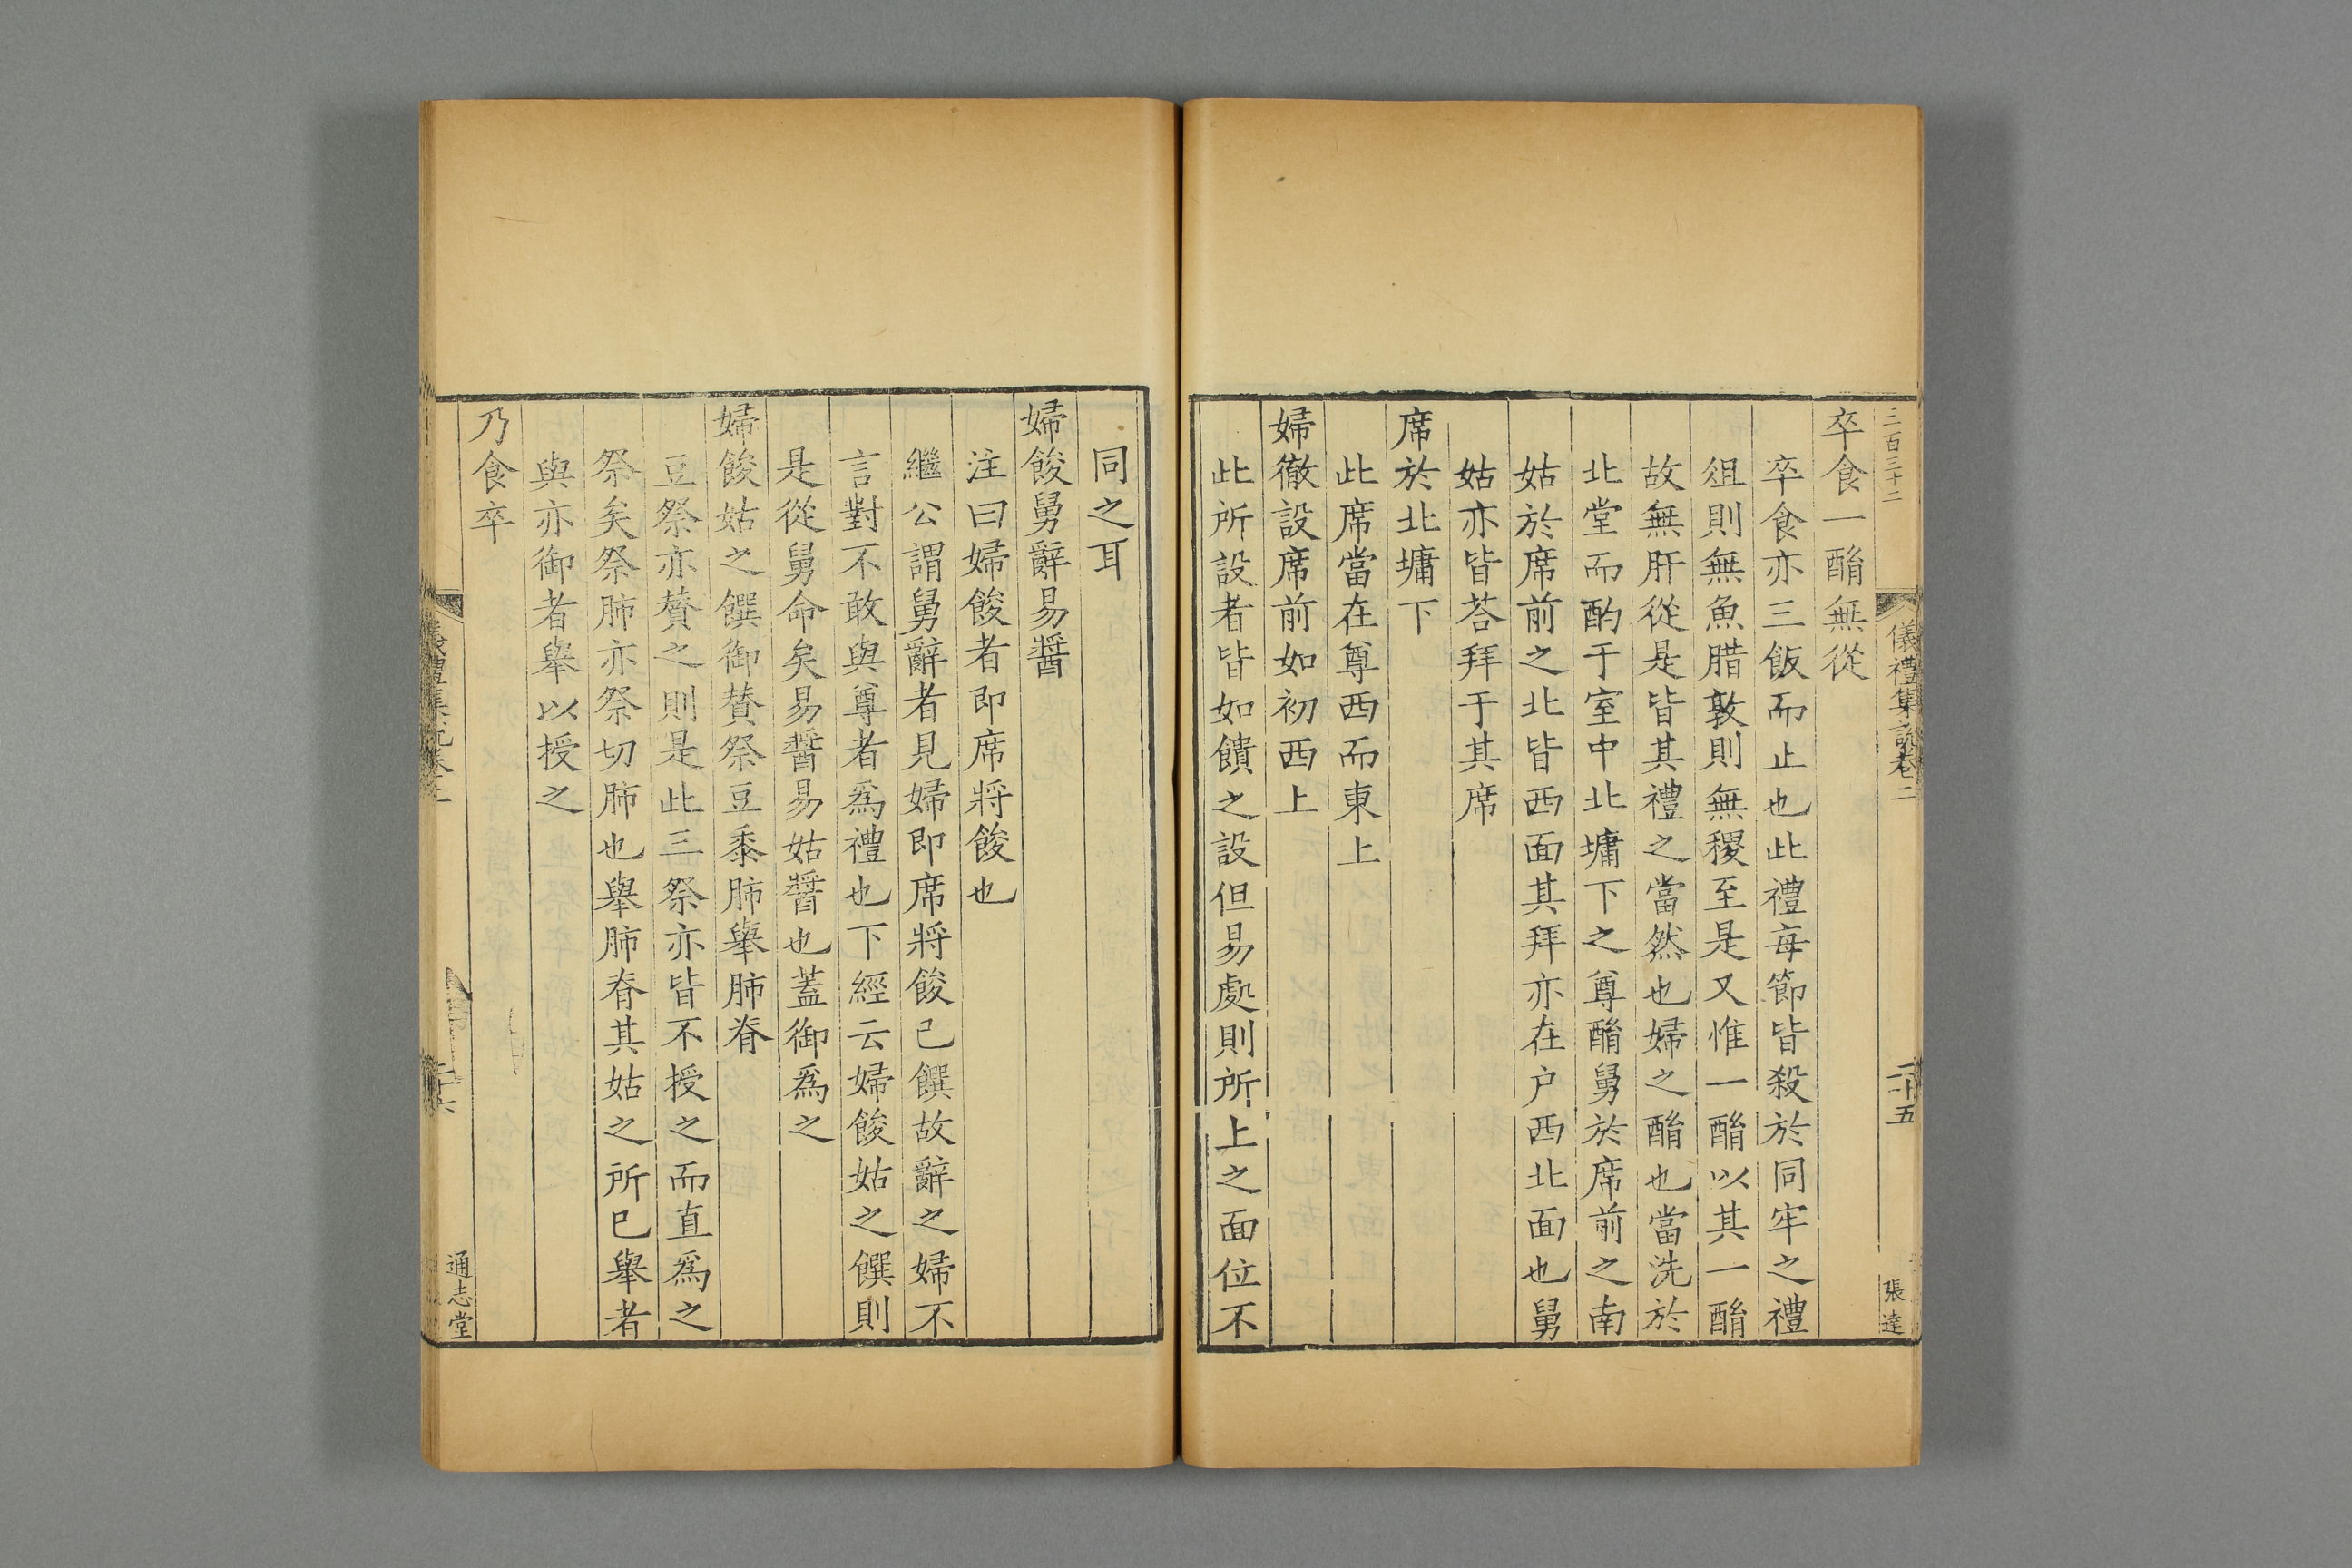 二百三十二
儀禮集說卷二
二十五
張達
卒食一酳無從
卒食亦三飯而止也此禮每節皆殺於同牢之禮
俎則無魚腊敦則無稷至是又惟一酳以其一酳
故無肝從是皆其禮之當然也婦之酳也當洗於
北堂而酌于室中北墉下之尊酳舅於席前之南
姑於席前之北皆西面其拜亦在户西北面也舅
姑亦皆荅拜于其席
席於北墉下
此席當在尊西而東上
婦徹設席前如初西上
此所設者皆如饋之設但易處則所上之面位不
同之耳
婦餕舅辭易醬
注曰婦餕者即席將餕也
繼公謂舅辭者見婦即席將餕己饌故辭之婦不
言對不敢與尊者爲禮也下經云婦餕姑之饌則
是從舅命矣易醬易姑醬也蓋御爲之
婦餕姑之饌御賛祭豆黍肺舉肺脊
豆祭亦賛之則是此三祭亦皆不授之而直爲之
祭矣祭肺亦祭切肺也舉肺脊其姑之所已舉者
與亦御者舉以授之
乃食卒
儀禮集說卷二
二十六
通志堂